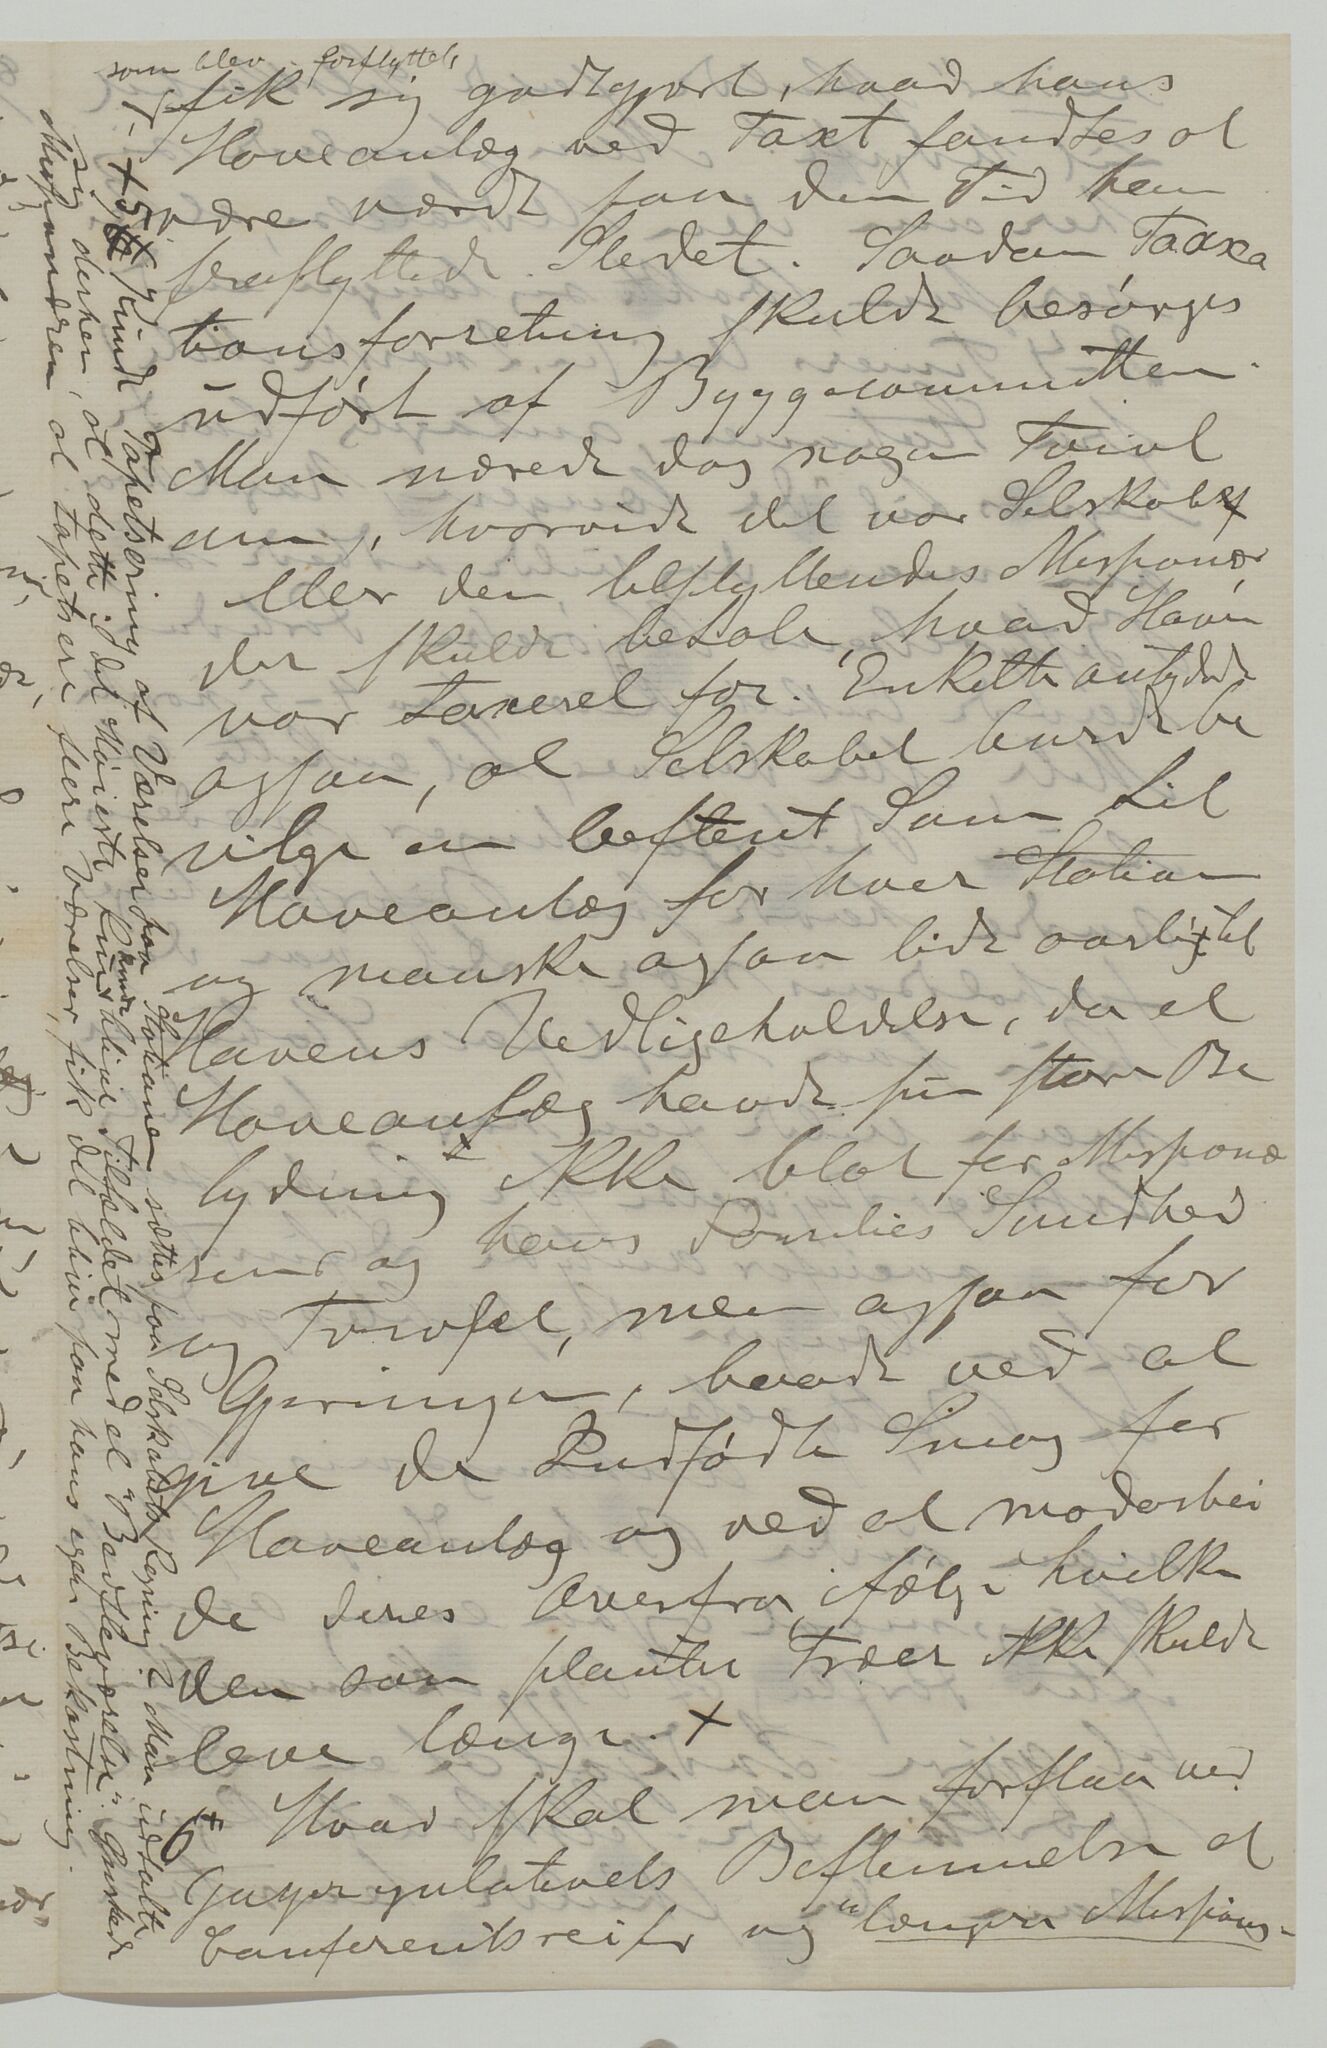 som blev forflyttet,
fik sig godtgjort, hvad hans
Haveanlæg ved Taxt fandtes at
være værdt paa den Tid han
fraflyttede Stedet. Saadan Taxa
tionsforretning skulde besørges
udført af Byggecommitteen.
Man nærede dog nogen Tvivl
om, hvorvidt det var Selskabet
eller den tilflyttendes Missionær
der skulde betale, hvad Haven
var taxeret for. Enkelte antydede
ogsaa, at Selskabet burde be
vilge en bestemt Sum til
Haveanlæg for hver Station
og manske ogsaa lidt aarligt til
Havens Vedligeholdelse, da et
Haveanlæg havde sin store Be
tydning ikke blot for Missionæ
rens og hans Families Sundhed
og Trivsel, men ogsaa for
Gjerningen, baade ved at
give de Indfødte Smag for
Haveanlæg og ved at modarbei
de deres Overtro, ifølge hvilken
den som planter Træer ikke skulde
leve længe. +
6 Hvad skal man forstaa ved
Gageregulativets Bestemmelse at
Conferentsreiser og "længere Missions-
+ 5 Kunde Tapetsering af Værelser paa Stationen sættes paa Selskabets Regning? Man udtalte
sig derhen, at dette i det Høieste kunde blive Tilfældet med et "Bedsteværelse". Ønskede
Missionæren at tapetsere flere Værelser, fik det blive paa hans egen Bekostning.